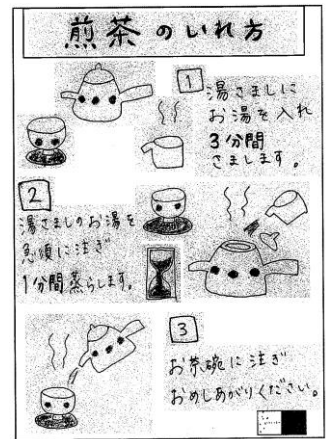 煎茶のいれ方
1
湯さましに
お湯を入れ
3分間
さまします。
2
湯さましのお湯を
急須に注ぎ
1分間蒸らします。
3
お茶碗に注ぎ
おめしあがりください。